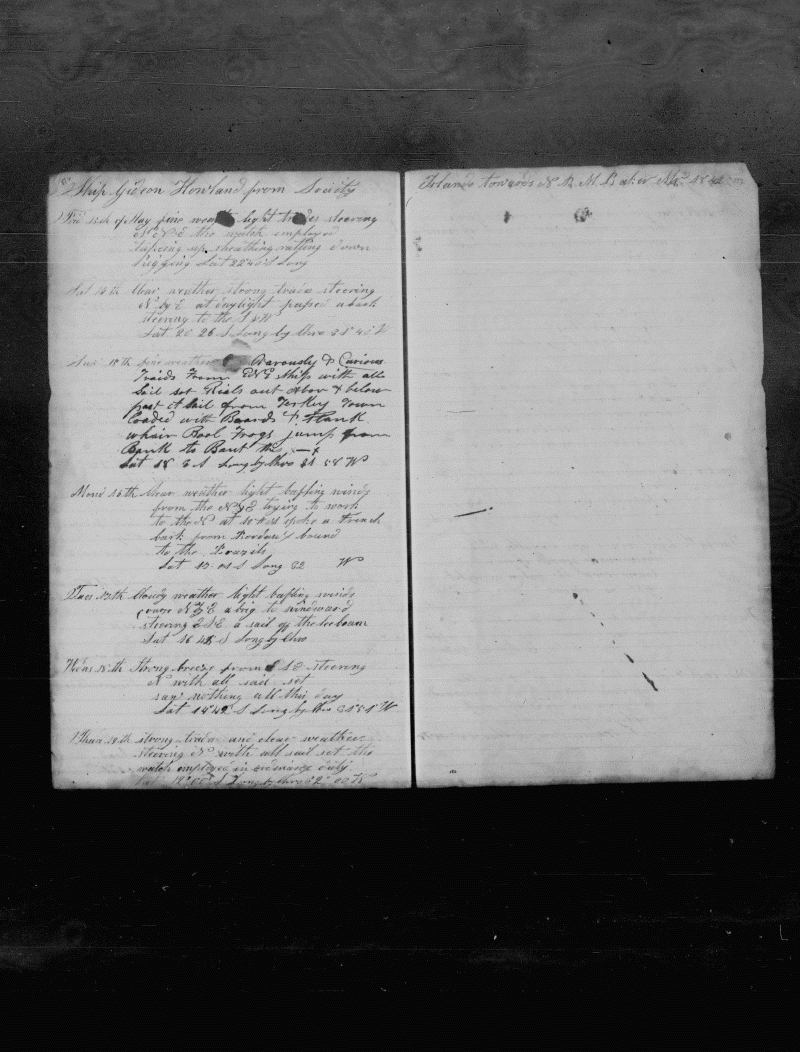 Ship Gideon Howland from Society
Islands towards N B M. Baker
Frid 13th of May fine weather light trades steering
N N E the watch employed
up sheathing ratling down
rigging Lat 22 40 S Long
Sat 14th Clear weather strong trades steering
N by E at daylight passed a bark
steering to the S W
Lat 20 26 S Long by Chro
Sun 15th fine weather & Curious
Traids From ENE Ship with all
Sail set Rials out Abov & below
past A Sail from Terkey Town
Loaded with Boards & Plank
whair Bool Frogs jump from
Bank to Bank the
Lat 18 8 S Long by Chro 34 58 W
Mond 16th Clear weather light baffling winds
from the N & E trying to work
to the N at 10 spoke a French
bark from Bordeaux bound
to the Brazils
Lat S Long 32 W
Tues 17th Cloudy weather light baffling winds
a brig to windward
steering E S E a sail of the lee beam
Lat 16 48 S Long by Chro
Weds 18th Strong breeze from S E steering
N with all sail set
saw nothing all this day
Lat 14 42 S Long by Chro W
Thurs 19th strong trades and clear weather
steering N with all sail set the
watch employed in ordinary duty
Lat S Long by Chro 32 00 W